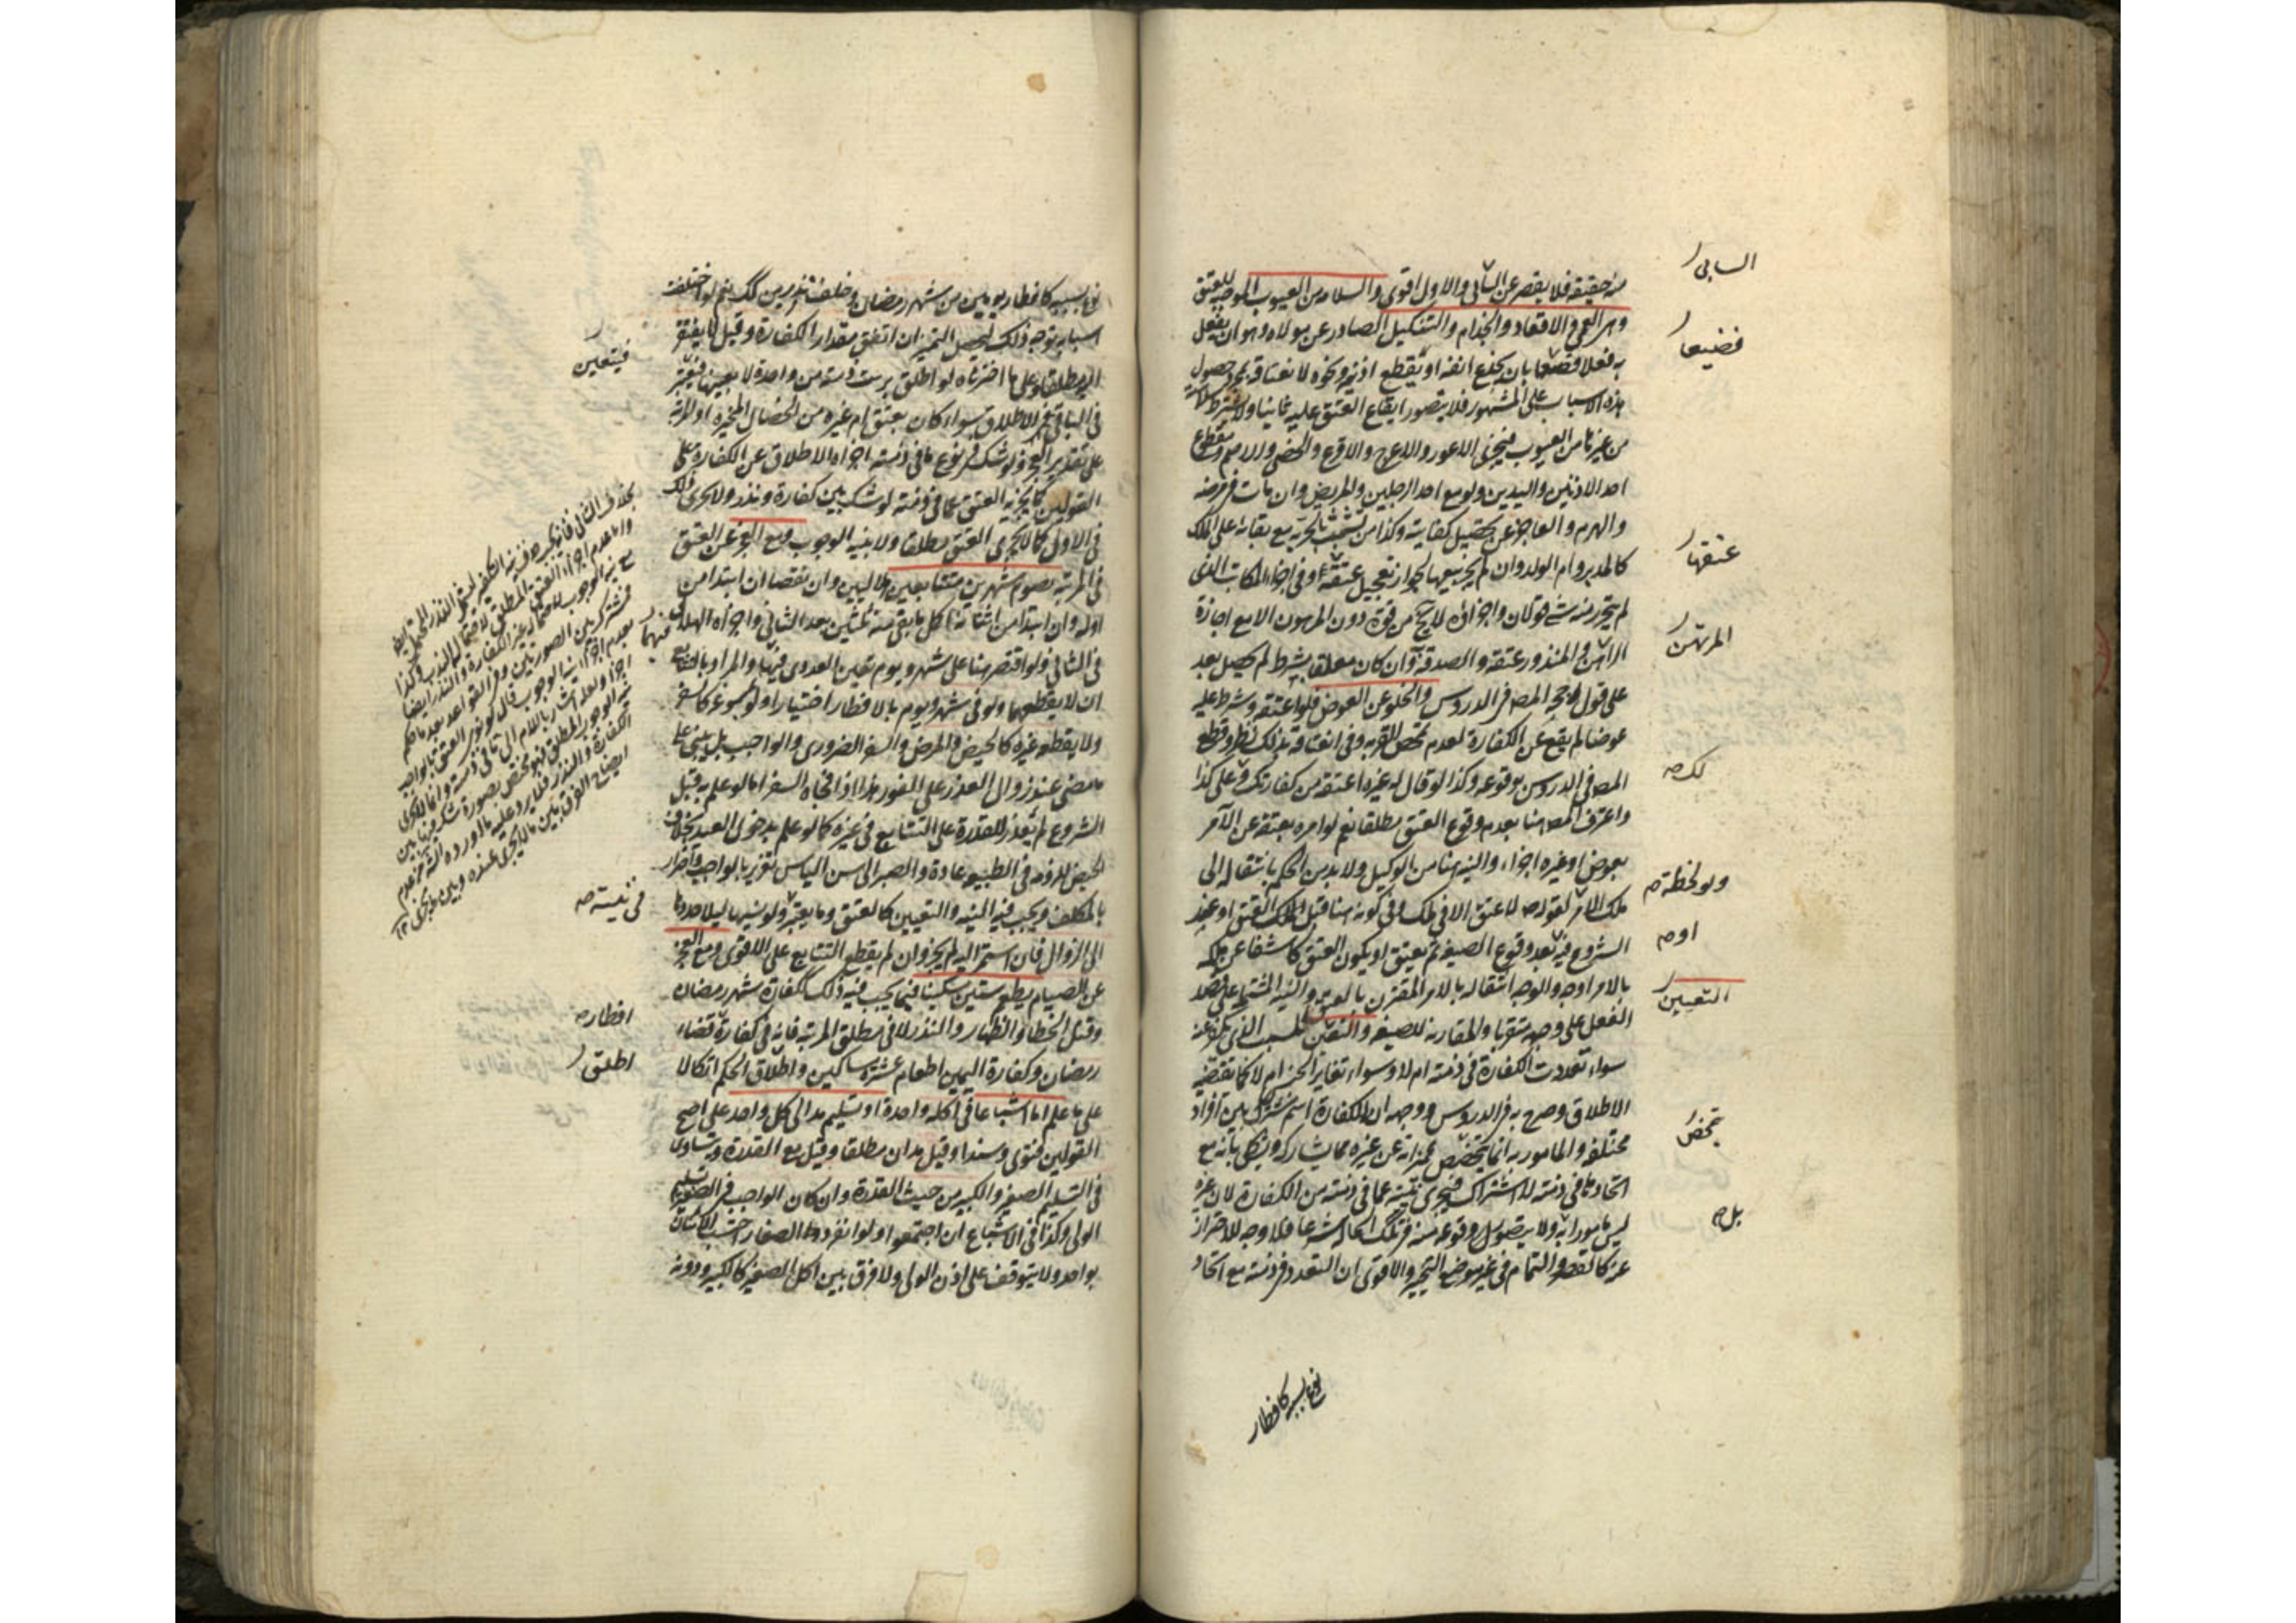 منه حقيقة فلا يقصر عن السابي والاول اقوى والسلامة من العيوب الموجبة للعتق
وهى العمى والاقعاد والجذام والتنكيل الصادر عن مولاه وهو ان يفعل
به فعلا فضيعا بان يجذع انفه او يقطع اذنيه ونحوه لانعتاقه بمجرد حصول
هذه الاسباب على المشهور فلا يتصور ايقاع العتق عليه ثانيا ولا يشترط سلامته
من غيرها من العيوب فيجزى الاعور والاعرج والاقرع والخصى والاصم ومقطوع
احد الاذنين واليدين ولو مع احد الرجلين والمريض وان مات فى مرضه
والهرم والعاجز عن تحصيل كفايته وكذا من تشبث بالحرية مع بقائه على الملك
كالمدبر وام الولد وان لم يجز بيعها لجواز تعجيل عتقها وفى اجزاء المكاتب الذى
لم يتحرر منه شئ قولان واجزاؤه لا يخ من قوة دون المرهون الا مع اجازة
المرتهن والمنذور عتقه والصدقة به وان كان معلقا بشرط لم يحصل بعد
على قول رجحه المصه فى الدروس والخلو عن العوض فلو اعتقه وشرط عليه
عوضا لم يقع عن الكفارة لعدم تمحض القربة وفى انعتاقه بذلك نظر وقطع
المصه فى الدروس بوقوعه وكذا لو قال له غيره اعتقه من كفارتك ولك على كذا
واعترف المصه هنا بعدم وقوع العتق مطلقا نعم لو امره بعتقه عن الآمر
بعوض او غيره اجزاء والنية هنا من الوكيل ولا بد من الحكم بانتقاله الى
ملك الآمر ولو لحظة لقوله ص لا عتق الا فى ملك وفى كونه هنا قبل العتق او عند
الشروع فيه او بعد وقوع الصيغة ثم يعتق او بكون العتق كاشفا عن ملكه
بالامر اوجه والوجه انتقاله بالامر المقترن بالعتق والنية المشتملة على قصد
الفعل على وجهه متقربا والمقارنة للصيغة والتعيين للسبب الذى يكفر عنه
سواء تعددت الكفارة فى ذمته ام لا وسواء تغاير الجنس ام لا كما يقتضيه
الاطلاق وصرح به فى الدروس ووجهه ان الكفارة اسم مشترك بين افراد
مختلفة والمامور به انما يتخصص بميزاته عن غيره مما يشاركه ويشكل بانه مع
اتحاد ما فى ذمته لا اشتراك فيجزى نيته عما فى ذمته من الكفارة لان غيره
ليس مامورا به بل ولا يتصور وقوعه منه فى تلك الحال شرعا فلا وجه للاحتراز
عنه كالقصر والتمام فى غير موضع التخيير والاقوى ان المتعدد فى ذمته مع اتحاد
السابى
فضيعا
عتقها
المرتهن
لك صه
ولو لحظة صه
او صه
التعيين
تمحض
بل صه
نوع سببه كافطار
نوع سببه كافطار يومين من شهر رمضان وخلف نذرين كك نعم لو اختلفت
اسبابه توجه ذلك ليحصل التمييز ان اتفق مقدار الكفارة وقيل لا يفتقر
اليه مطلقا وعلى ما اخترناه لو اطلق برئت ذمته من واحدة لا بعينها فيتعين
فى الباقى الاطلاق سواء كان بعتق ام غيره من الخصال المخيرة او المرتبة
على تقدير العجز ولو شك فى نوع ما فى ذمته اجزاه الاطلاق عن الكفارة على
القولين كما يجزيه العتق عما فى ذمته لو شك بين كفارة ونذر ولا يجزى ذلك
فى الاول كما لا يجزى العتق مطلقا ولا بنية الوجوب ومع العجز عن العتق
فى المرتبة يصوم شهرين متتابعين هلاليين وان نقصا ان ابتدا من
اوله وان ابتدا من اثنائه اكمل ما بقى منه ثلثين بعد الثانى واجزاه الهلالى
فى الثانى ولو اقتصر هنا على شهر ويوم تعين العددى فيهما والمراد بالتتابع
ان لا يقطعهما ولو فى شهر ويوم بالافطار اختيارا ولو بمسوغه كالسفر
ولا يقطعه غيره كالحيض والمرض والسفر الضرورى والواجب بل يبنى على
ما مضى عند زوال العذر على الفور هذا اذا فاجاه السفر اما لو علم به قبل
الشروع لم يعذر للقدرة على التتابع فى غيره كما لو علم بدخول العيد بخلاف
الحيض للزومه فى الطبيعة عادة والصبر الى سن الياس تغرير بالواجب واضرار
بالمكلف ويجب فيه النية والتعيين كالعتق وما يعتبر فى نيته ولو نسيها ليلا جددها
الى الزوال فان استمر اليه لم يجز وان لم يقطع التتابع على الاقوى ومع العجز
عن الصيام يطعم ستين مسكينا فيما يجب فيه ذلك ككفارة شهر رمضان
وقتل الخطاء والظهار والنذر لا فى مطلق المرتبة فانه فى كفارة افطار قضاء
رمضان وكفارة اليمين اطعام عشرة مساكين واطلق الحكم اتكالا
على ما علم اما اشباعا فى اكلة واحدة او تسليم مد الى كل واحد على اصح
القولين فتوى وسندا وقيل مدان مطلقا وقيل مع القدرة ويتساوى
فى التسليم الصغير والكبير من حيث القدرة وان كان الواجب فى الصغير تسليم
الولى وكذا فى الاشباع ان اجتمعوا ولو انفرد الصغار احتسب الاثنان
بواحد ولا يتوقف على اذن الولى ولا فرق بين اكل الصغير كالكبير ودونه
فيتعين
فيهما
فى نيته صه
افطار صه
اطلق